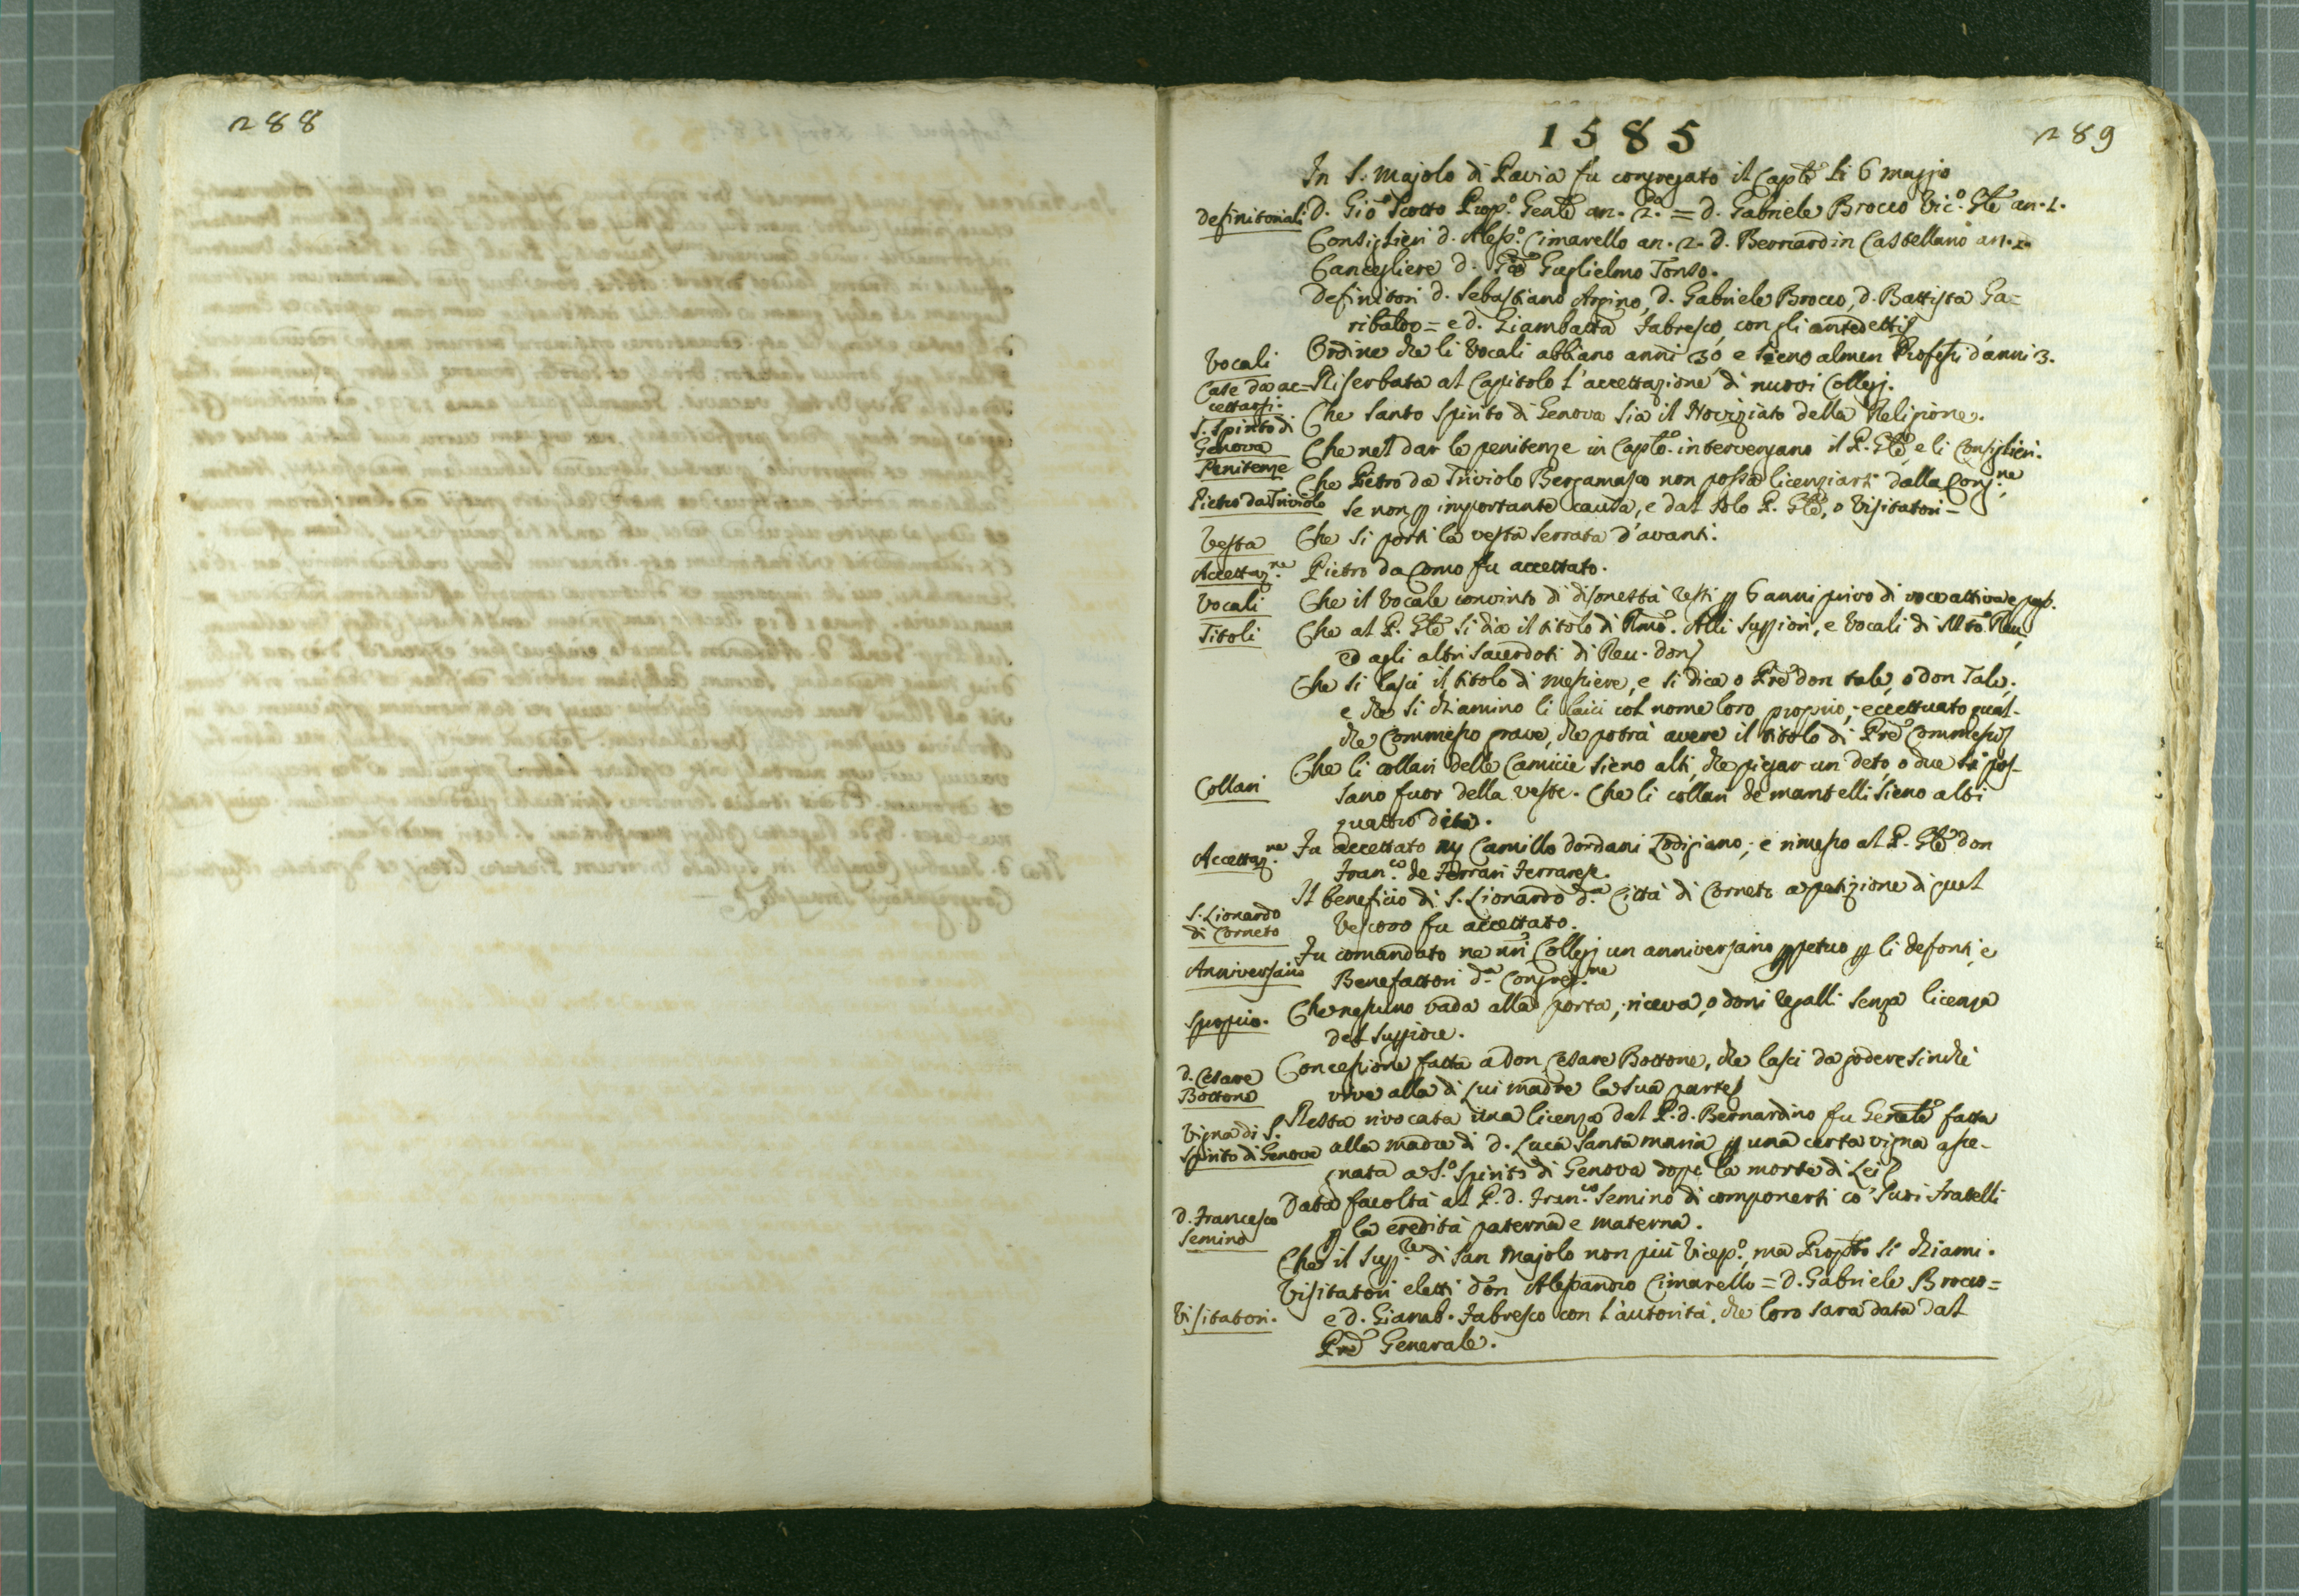 288
289
1585
In S. Majolo di Pavia fu congregato il Caplo li 6 maggio
Definitoriali D. Gio Scotto Prop.o Genle an. 2.do = d. Gabriele Brocco Vic.o Gle an. 1.
Consiglieri d. Aless.o Cimarello an. 2. d. Bernardin Castellano an. 2.
Cancegliere d. Gio Guglielmo Tonso.
Definitori d. Sebastiano Arpino, d. Gabriele Brocco, d. Battista Ga=
ribaldo = e d. Giambatta Fabresco, con gli antedetti
Vocali Ordine che li Vocali abbiano anni 30 e sieno almen Professi d'anni 3.
Case da ac= Riserbata al Capitolo l'accettazione di nuovi Collegj.
cettarsi.
S. Spirito di Che santo Spirito di Genova sia il Noviziato della Religione.
Genova
Penitenze Che nel dar le penitenze in Caplo. intervengano il P. Gle, e li Consiglieri.
Che Pietro da Triviolo Bergamasco non possa licenziarsi dalla Cong.ne
Pietro da Triviolo se non p importante causa, e dal solo P. Gle, o Visitatori -
Vesta Che si porti la vesta serrata d'avanti.
Accettaz.ne Pietro da Como fu accettato.
Vocali Che il Vocale convinto di disonestà resti p 6 anni privo di voce attiva e pass.
Titoli Che al P. Gle si dia il titolo di Rmo. Alli Suppiori, e Vocali di Mto Reu,
ed agli altri Sacerdoti di Reu. don
Che si lasci il titolo di Messere, e si dica o Pre don tale, o don Tale,
e che si chiamino li laici col nome loro proprio, eccettuato qual-
che Commesso grave, che potrà avere il titolo di Pre Commesso
Collari Che li collari delle Camicie sieno alti, che piegar un deto, o due si pos-
sano fuor della veste. Che li collari de mantelli sieno alti
quattro dita.
Accettaz.ne Fu accettato Camillo dordani Lodigiano, e rimesso al P. Gle don
Fran.co de Ferrari Ferrarese.
S. Lionardo Il beneficio di S. Lionardo d.a Città di Corneto a petizione di quel
di Corneto Vescovo fu accettato.
Anniversario Fu comandato ne nri Collegj un anniversario ppetuo p li defonti, e
Benefattori d.a Congreg.ne
Spropio. Che nessuno vada alla porta, riceva, o doni regalli senza licenza
del Suppiore.
d. Cesare Concessione fatta a don Cesare Bottone, che lasci da godere sinchè
Bottone vive alla di lui madre la sua parte
Vigna di S. Resta rivocata una licenza dal P. d. Bernardino fu Genle fatta
Spirito di Genova alla madre di d. Luca Santamaria p una certa vigna asse-
gnata a S.o Spirito di Genova dopo la morte di Lei
d. Francesco Data facoltà al P. d. Fran.co Semino di componersi co' suoi Fratelli
Semino p la eredità paterna e materna.
Che il Supp.re di San Majolo non più Vicep.o, ma Propsto si chiami.
Visitatori. Visitatori eletti don Alessandro Cimarello = d. Gabriele Brocco =
e d. Giamb. Fabresco con l'autorità, che loro sarà data dal
Pre Generale.